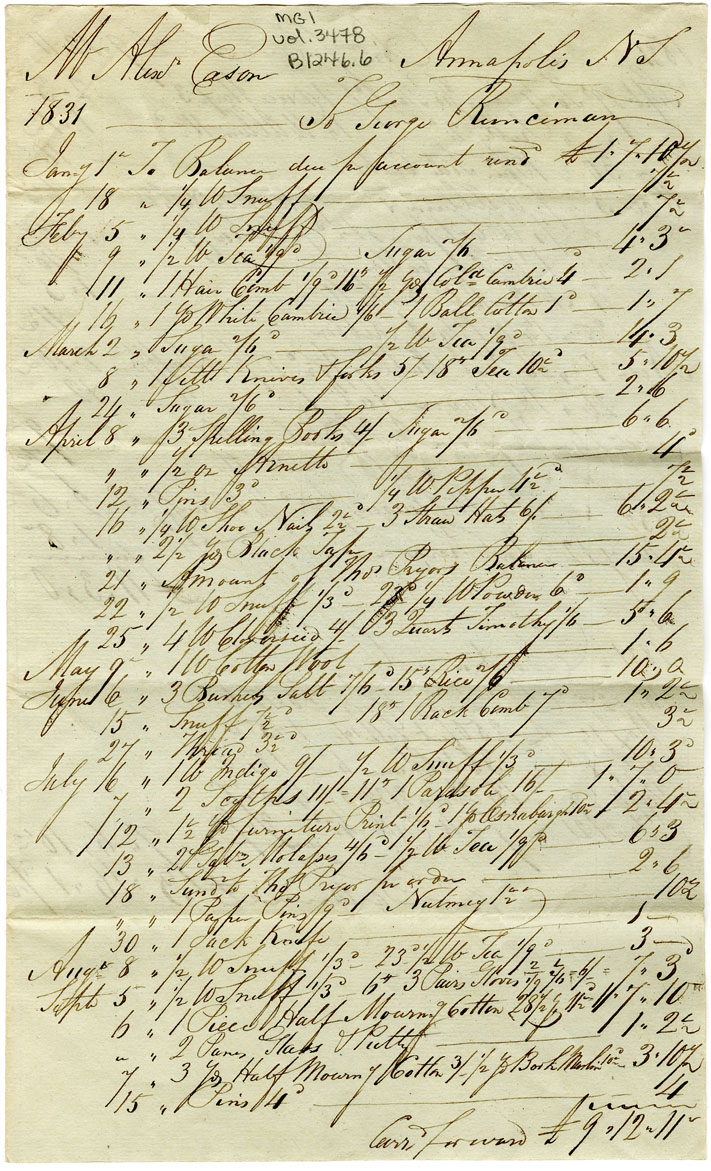 MG1
vol. 3478
B1246.6
Mr Alexr Eason Annapolis N S
1831 To George Runciman
Jany 1st To Balance due pr account rend £ 1 " 7 " 10 1/2
18 " 1/4 lb Snuff 7 1/2
Feby 5 " 1/4 lb Snuff 7 1/2
9 " 1/2 lb Tea 1/9d Sugar 2/6 4 " 3
11 " 1 Hair Comb 1/9d 16th 1/2 yd Cold Cambric 4d 2 " 1
16 " 1 yd White Cambric 1/6 1 Ball Cotton 1d 1 " 7
March 2 " Sugar 2/6d 1/2 lb Tea 1/9d 4 " 3
8 " 1 Sett Knives & forks 5/ 18th Tea 10 1/2d 5 " 10 1/2
24 " Sugar 2/6d 2 " 6
April 8 " 3 Spelling Books 4/ Sugar 2/6d 6 " 6
" " 1/2 oz Arnetto 4d
12 " Pins 3d 1/4 lb Pepper 4 1/2d 7 1/2
16 " 1/4 lb Shoe Nails 2 1/2d 3 Straw Hats 6/ 6 " 2 1/2
" " 2 1/2 yds Black Tape 2 1/2
21 " Amount of Thos Pryors Balance 15 " 4 1/2
22 " 1/2 lb Snuff 1/3d 1/4 lb Powder 6d 1 " 9
25 " 4 lb Cloverseed 4/ 3 Quarts Timothy 1/6 5 " 6
May 9 " 1 lb Cotton Wool 1 " 6
June 6 " 3 Bushels Salt 7/6d 15th Rice 2/6 10 " 0
15 " Snuff 7 1/2d 18th 1 Rack Comb 7d 1 " 2 1/2
27 " Thread 3 1/2d 3 1/2
July 6 " 1 lb Indigo 9/ 1/2 lb Snuff 1/3d 10 " 3d
7 " 2 Scythes 11/ 11th 1 Parasole 16/ 1 " 7 " 0
12 " 1 1/2 yd furniture Print 1/6d 1 yd Osnaburgh 10 1/2 2 " 4 1/2
13 " 2 Galls Molasses 4/6d 1/2 lb Tea 1/9d 6 " 3
18 " Sunds to Thos Pryor pr order 2 " 6
" " 1 Paper Pins 9d Nutmeg 1 1/2 10 1/2
30 " 1 Jack Knife 1
Augt 8 " 1/2 lb Snuff 1/3d 23d 1/2 lb Tea 1/9d 3
Septr 5 " 1/2 lb Snuff 1/3d 6th 3 Pairs Gloves 6/ 7 " 3d
6 " 1 Piece Half Mourng Cotton 28 1/2 yds 11 1/2d 1 " 7 " 10
" " 2 Panes Glass & Putty 1 " 2 1/2
7 " 3 yds Half Mourng Cotton 3/ 1/2 yd Book Muslin 10 1/2 3 " 10 1/2
15 " Pins 4d 4
Carrd forward £ 9 " 12 " 11